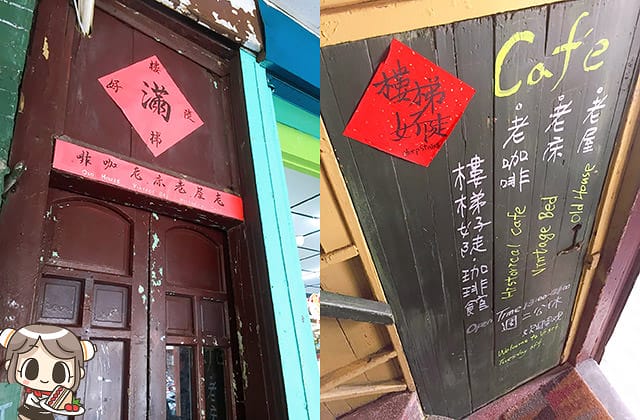 樓
好 滿 陡
梯
啡咖老床老屋老
Old House
樓梯
好陡
Café
老屋 Old House
老床 Vintage Bed
老咖啡 Historical Cafe
樓梯好陡咖啡館
Open Time
週二公休
Welcome to visit